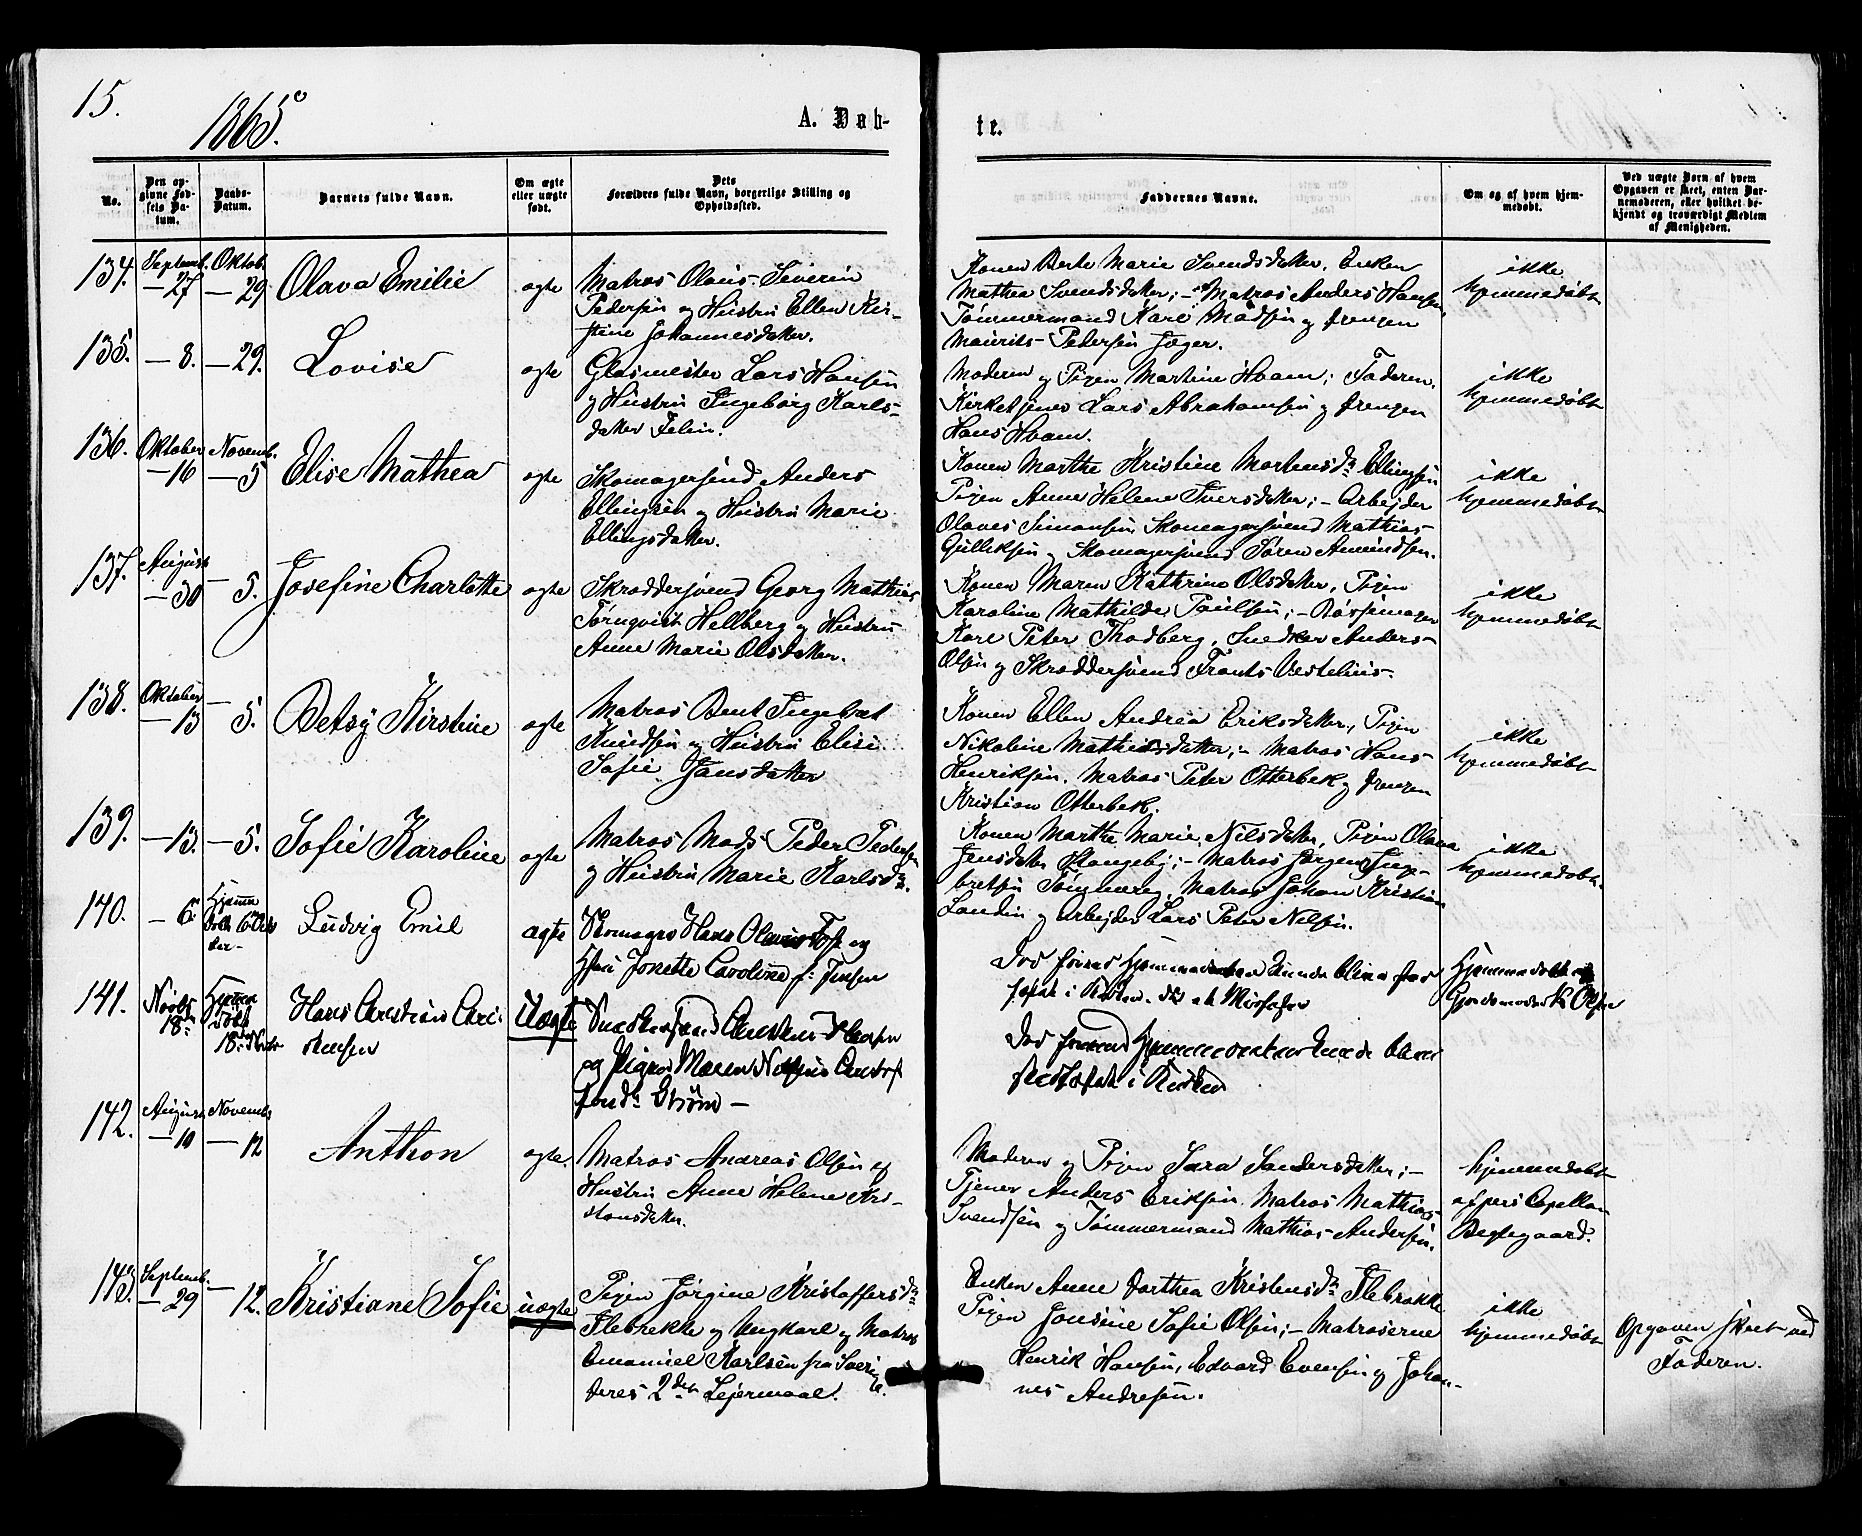 15.
1865.
A. Døb-
te.
No.
Den op-
givne Fød-
sels Da-
tum.
Daabs-
Datum.
Barnets fulde Navn.
Om ægte
eller uægte
født.
Dets
Forældres fulde Navn, borgerlige Stilling og
Opholdssted.
Faddernes Navne.
Om og af hvem hjem-
medøbt.
Ved uægte Børn af hvem
Opgaven er skeet, enten Bar-
nemoderen, eller hvilket be-
kjendt og troværdigt Medlem
af Menigheden.
134.
Septemb.
— 27
Oktob.
— 29
Olava Emilie
ægte
Matros Olaus Severin
Pedersen og Hustru Ellen Kir-
stine Johannesdatter.
Konen Berte Marie Svendsdatter, Enken
Mathea Svendsdatter; - Matros Anders Hansen,
Tømmermand Karl Madsen og Drengen
Maurits Pedersen Jæger.
ikke
hjemmedøbt
135.
— 8.
— 29.
Lovise
ægte
Glasmester Lars Hansen
og Hustru Ingeborg Karls-
datter Felin.
Moderen og Pigen Martine Hvam; Faderen,
Kirketjener Lars Abrahamsen og Drengen
Hans Hvam.
ikke
hjemmedøbt
136.
Oktober
— 16
Novemb.
— 5
Elise Mathea
ægte
Skomagersvend Anders
Ellingsen og Hustru Marie
Ellingsdatter.
Konen Marthe Kristine Mortensdr Ellingsen
Pigen Anne Helene Iversdatter; - Arbejder
Olaves Simonsen, Skomagersvend Mathias
Gulliksen og Skomagersvend Søren Amundsen.
ikke
hjemmedøbt
137.
August
— 30
— 5.
Josefine Charlotte
ægte
Skræddersvend Georg Mathias
Törnqvist Hellberg og Hustru
Anne Marie Olsdatter.
Konen Maren Kathrine Olsdatter, Pigen
Karoline Mathilde Paulsen; - Bøssemager
Karl Peter Thodberg, Snedker Anders
Olsen og Skræddersvend Frants Vestelius.
ikke
hjemmedøbt
138.
Oktober
— 13
— 5.
Betsy Kirstine
ægte
Matros Bent Ingebret
Knudsen og Hustru Elise
Sofie Jansdatter
Konen Ellen Andrea Eriksdatter, Pigen
Nikoline Mathiasdatter; - Matros Hans
Henriksen, Matros Peter Otterbek og Drengen
Kristian Otterbek.
ikke
hjemmedøbt
139.
— 13.
— 5.
Sofie Karoline
ægte
Matros Mads Peder Pedersen
og Hustru Marie Karlsdr.
Konen Marthe Marie Nilsdatter, Pigen Olava
Jensdatter Stangeby; - Matros Jørgen Inge-
bretsen Tømmereg, Matros Johan Kristian
Landin og Arbejder Lars Peter Nilsen.
ikke
hjemmedøbt.
140.
— 6.
Hjemme
Ludvig Emil
ægte
Skomager Hans Olavius Foss og
Hstru Jonette Caroline f. Jensen
Død førend Hjemmedaaben kunde blive stad-
fæstet i Kirken
Hjemmedøbt af
Gjordemoder Olsen
141.
Novbr
18.
Hjemme
døbt
18
Hans Christian Chri-
stensen
Uægte
Snedkersvend Christen Hansen
og Pigen Maren
Strøm —
Død førend Hjemmedaaben kunde blive
stadfæstet i Kirken
142.
August
— 10
Novemb.
— 12
Anthon
ægte.
Matros Andreas Olsen og
Hustru Anne Helene Kri-
stansdatter.
Moderen og Pigen Sara Sandersdatter; -
Tjener Anders Eriksen, Matros Mathias
Svendsen og Tømmermand Mathias Andersen.
hjemmedøbt
af pers. Capellan
Bechgaard.
143.
Septemb.
— 29
— 12.
Kristiane Sofie
uægte
Pigen Jørgine Kristoffersdr
Flebrække og Ungkarl og Matros
Emanuel Karlsen fra Sverige.
deres 2det Lejermaal.
Enken Anne Dorthea Kristensdr Flebrække
Pigen Jonsine Sofie Olsen; - Matroserne
Henrik Hansen, Edvard Evensen og Johan-
nes Andresen.
ikke
hjemmedøbt
Opgaven skeet ved
Faderen.